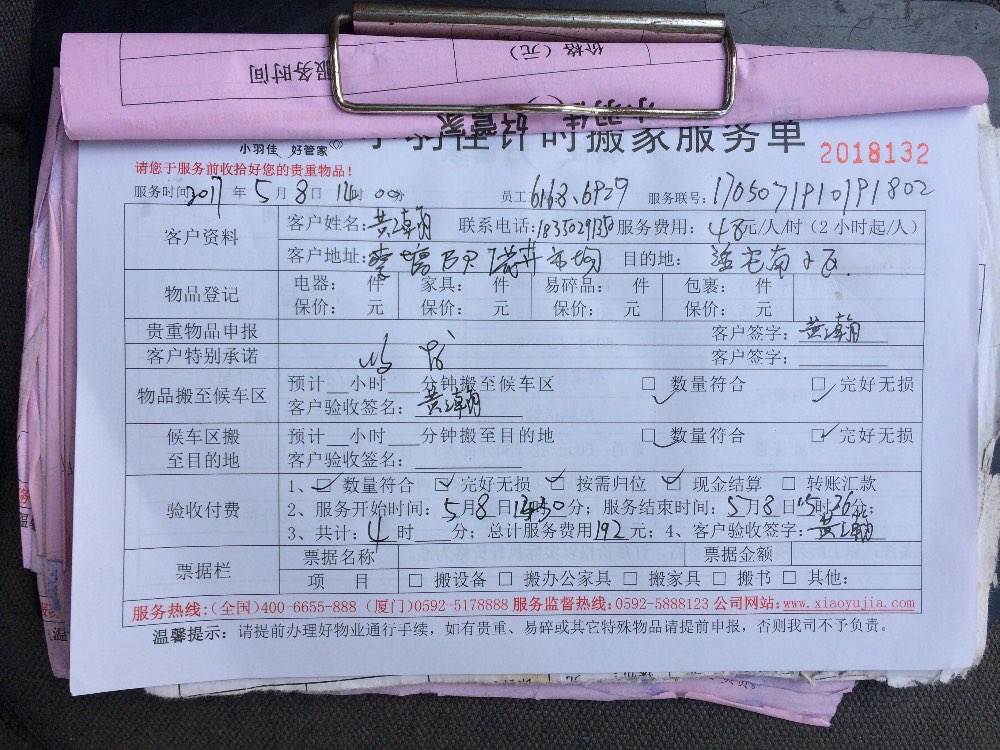 服务时间
价格（元）
小羽佳 好管家
计时搬家服务单
2018132
小羽佳 好管家
请您于服务前收拾好您的贵重物品！
服务时间2017年5月8日14时00分 员工6168.6929 服务联号：1705071910191802
客户资料
客户姓名：黄瀚 联系电话： 服务费用：48元/人/时（2小时起/人）
客户地址： 目的地：
物品登记
电器： 件 家具： 件 易碎品： 件 包裹： 件
保价： 元 保价： 元 保价： 元 保价： 元
贵重物品申报 客户签字：黄瀚
客户特别承诺 客户签字：
物品搬至候车区
预计 小时 分钟搬至候车区 □ 数量符合 □ 完好无损
客户验收签名：黄瀚
候车区搬至目的地
预计 小时 分钟搬至目的地 □ 数量符合 □ 完好无损
客户验收签名：
验收付费
1、□ 数量符合 □ 完好无损 □ 按需归位 □ 现金结算 □ 转账汇款
2、服务开始时间：5月8日 30分；服务结束时间：5月8日15时26分；
3、共计：4时 分；总计服务费用192元；4、客户验收签字：黄瀚
票据栏
票据名称 票据金额
项 目 □ 搬设备 □ 搬办公家具 □ 搬家具 □ 搬书 □ 其他：
服务热线：（全国）400-6655-888（厦门）0592-5178888 服务监督热线：0592-5888123 公司网站：www.xiaoyujia.com
温馨提示：请提前办理好物业通行手续，如有贵重、易碎或其它特殊物品请提前申报，否则我司不予负责。